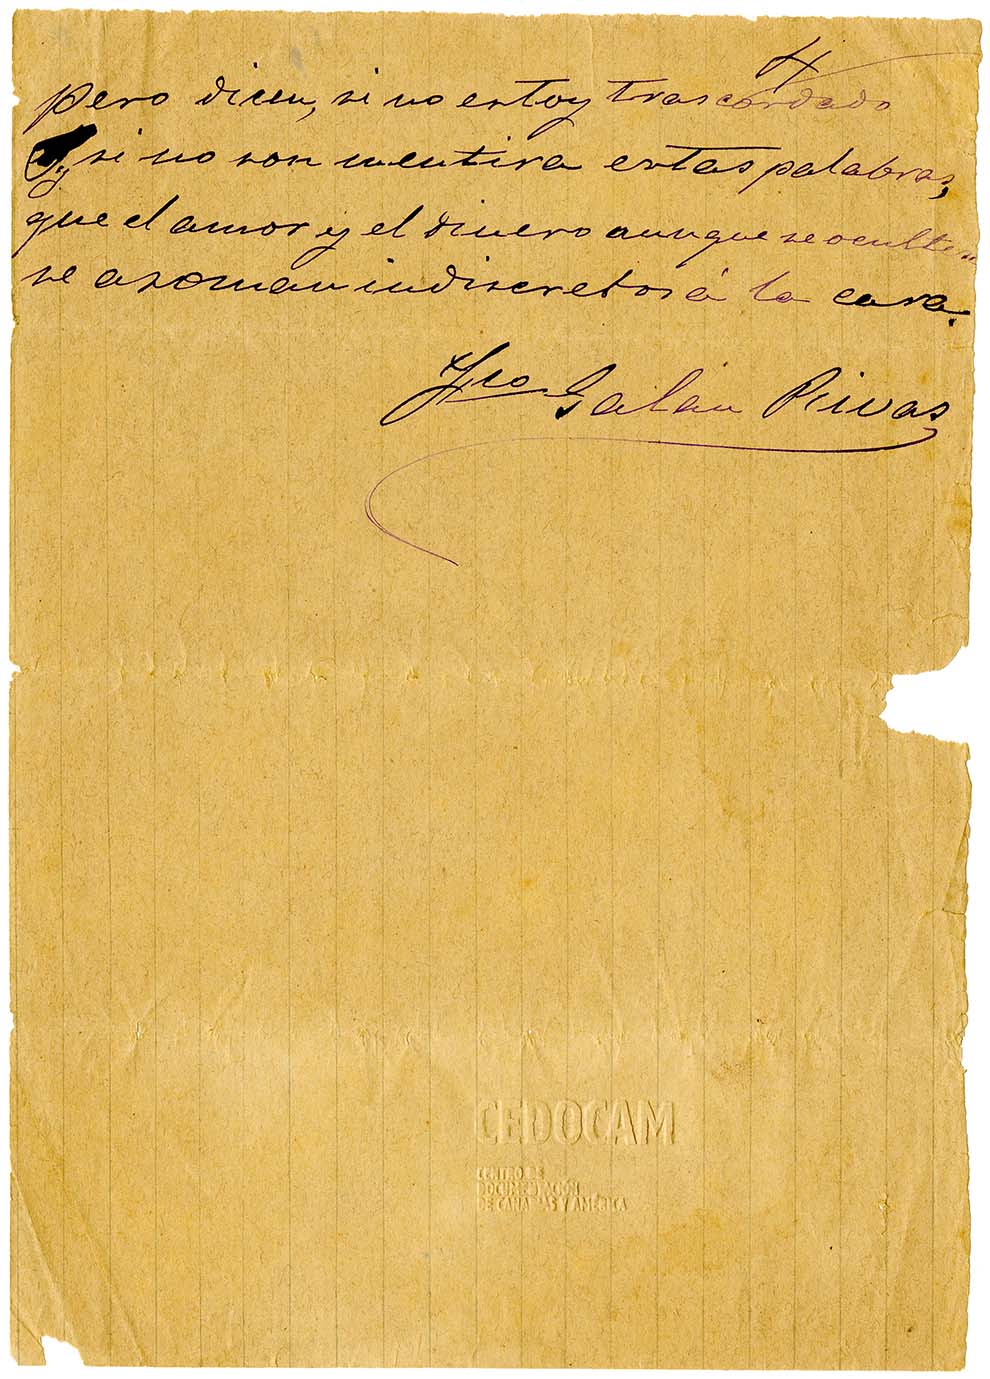 pero dicen, si no estoy trascordado
y, si no son mentira estas palabras,
que el amor y el dinero aunque se oculten
se asoman indiscretos á la cara.
Fco Galán Rivas
CEDOCAM
CENTRO DE
DOCUMENTACIÓN
DE CANARIAS Y AMÉRICA